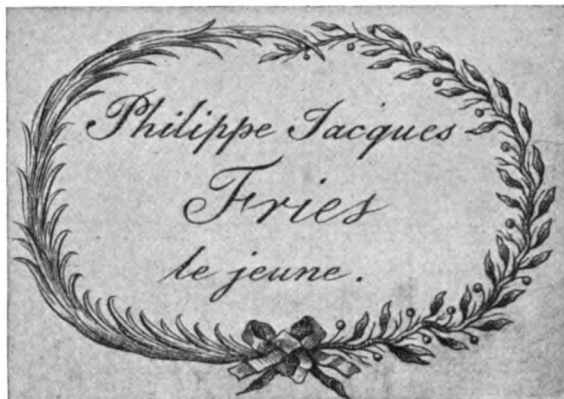 Philippe Jacques
Fries
le jeune.